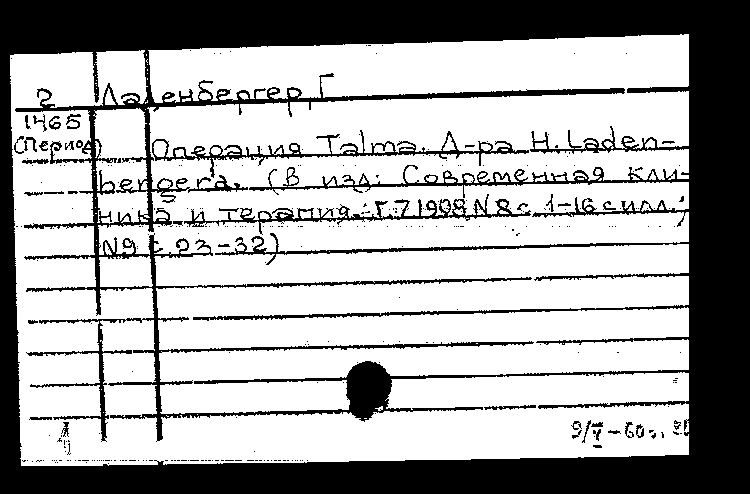 2 Ладенбергер, Г
1465
(Период) Операция Talma. Д-ра H. Laden-
berger'a. (В изд: Современная кли-
ника и терапия. Г. 7 1908 N 8 с. 1-16 с илл.;
N9 с. 23-32)
9/V-60г.